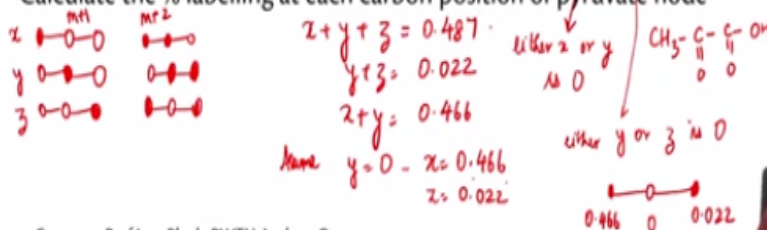 Calculate the % labelling at each carbon position of pyruvate node
m+1 m+2
x
y
z
x+y+z = 0.487
y+z = 0.022
x+y = 0.466
Assume y=0 - x=0.466
z= 0.022
either x or y
is 0
CH3-C-C-OH
O O
either y or z is 0
0.466 0 0.022